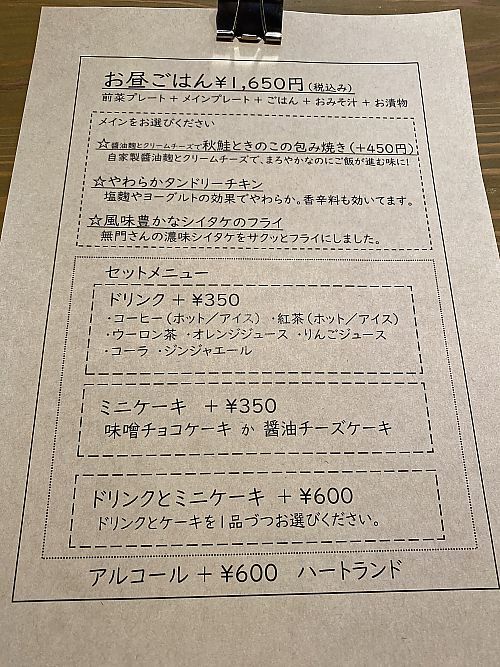 お昼ごはん¥1,650円(税込み)
前菜プレート＋メインプレート＋ごはん＋おみそ汁＋お漬物
メインをお選びください
☆醬油麹とクリームチーズで秋鮭ときのこの包み焼き(+450円)
自家製醬油麹とクリームチーズで、まろやかなのにご飯が進む味に!
☆やわらかタンドリーチキン
塩麹やヨーグルトの効果でやわらか。香辛料も効いてます。
☆風味豊かなシイタケのフライ
無門さんの濃味シイタケをサクッとフライにしました。
セットメニュー
ドリンク＋¥350
・コーヒー(ホット／アイス)・紅茶(ホット／アイス)
・ウーロン茶・オレンジジュース・りんごジュース
・コーラ・ジンジャエール
ミニケーキ ＋¥350
味噌チョコケーキ か 醬油チーズケーキ
ドリンクとミニケーキ ＋¥600
ドリンクとケーキを1品づつお選びください。
アルコール＋¥600 ハートランド